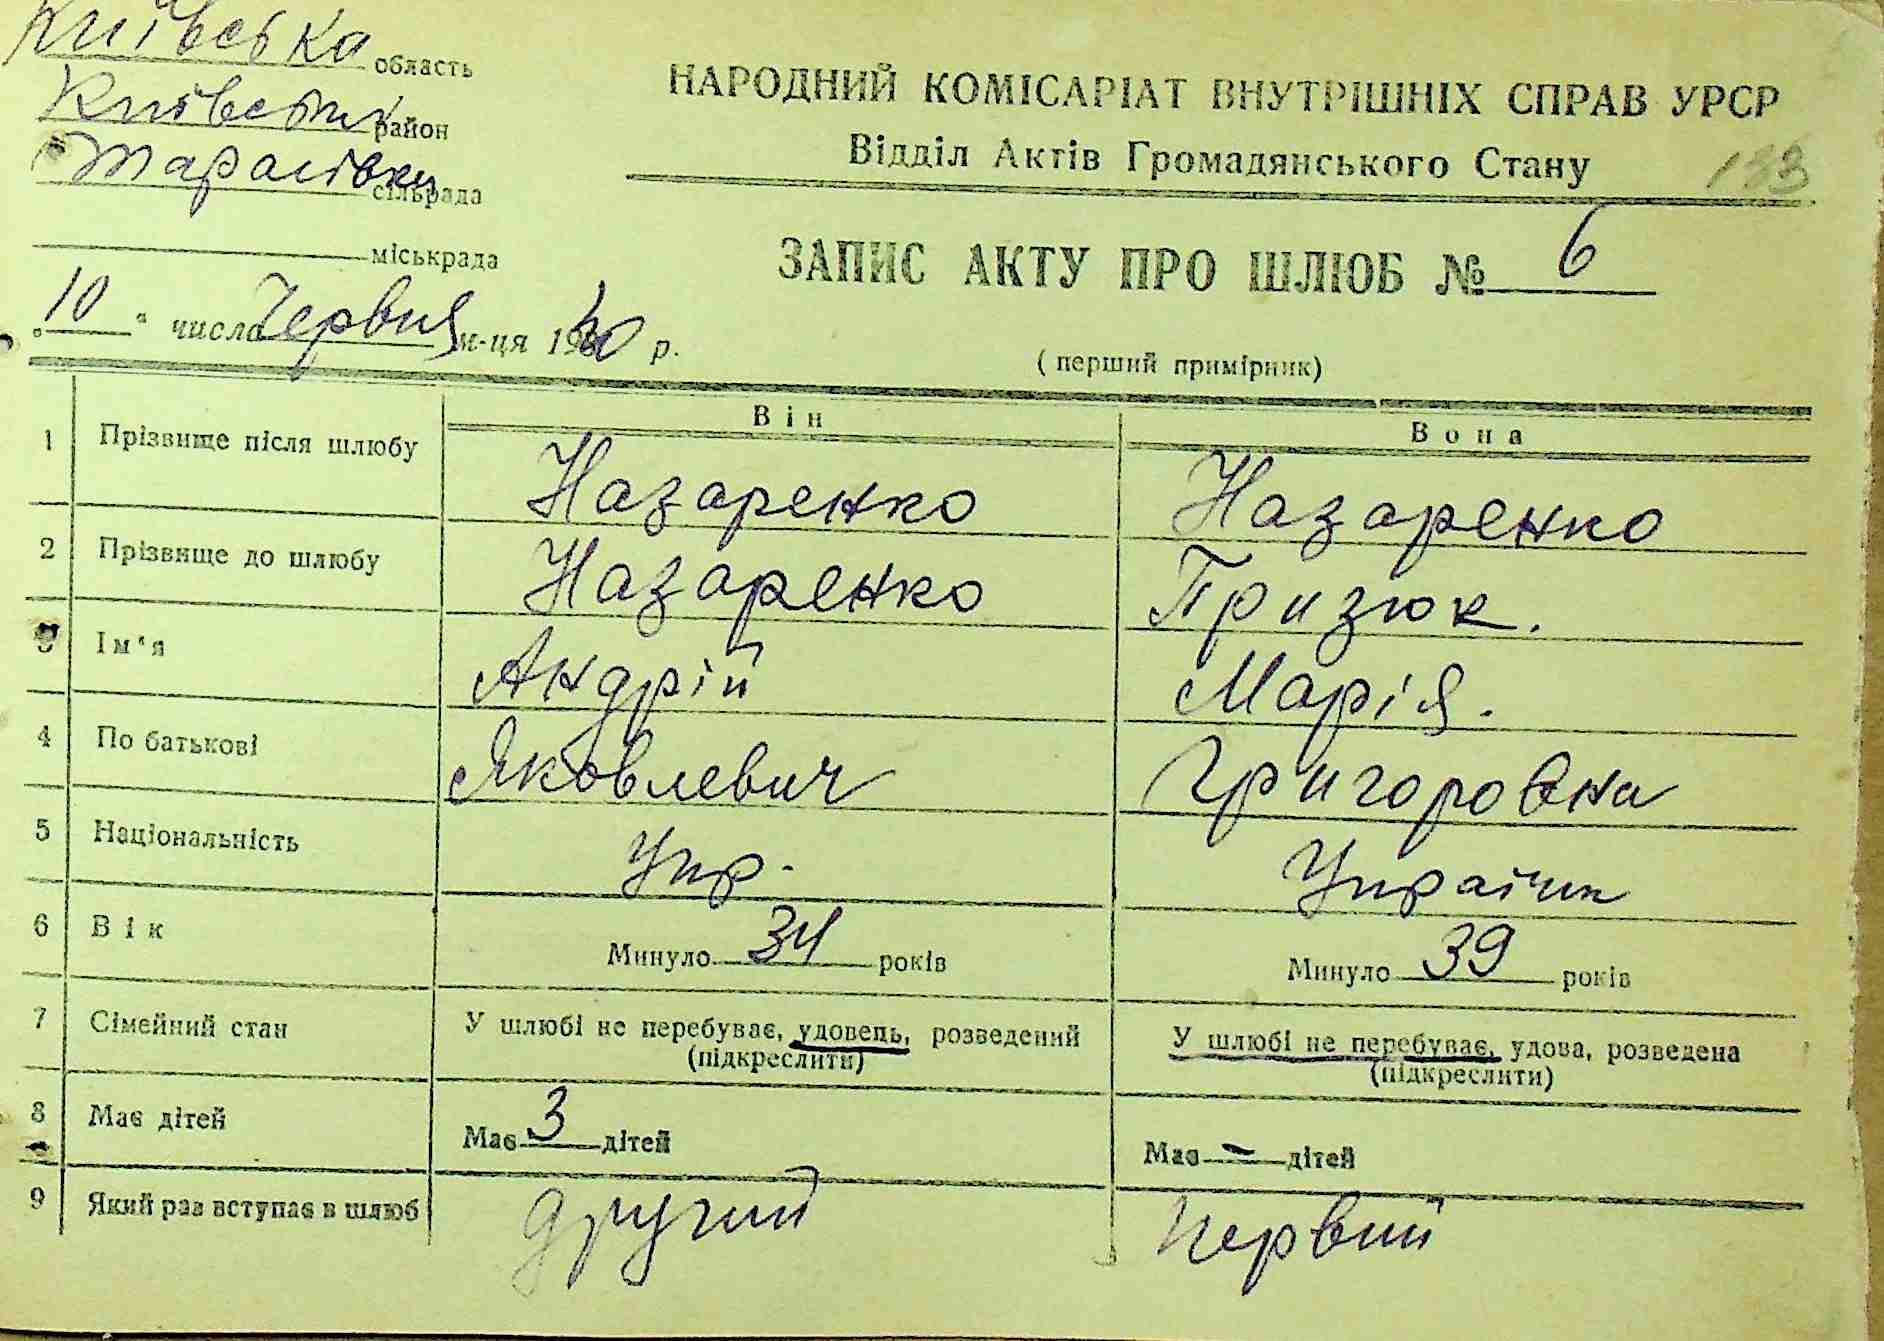 Київська область
Київський район
Тарасівка сільрада
міськрада
НАРОДНИЙ КОМІСАРІАТ ВНУТРІШНІХ СПРАВ УРСР
Відділ Актів Громадянського Стану
133
ЗАПИС АКТУ ПРО ШЛЮБ № 6
„10“ числа Червня м-ця 1940 р.
(перший примірник)
Він Вона
1 Прізвище після шлюбу Назаренко Назаренко
2 Прізвище до шлюбу Назаренко Призюк.
3 Ім'я Андрій Марія.
4 По батькові Яковлевич Григоровна
5 Національність Укр. Українк
6 Вік Минуло 34 років Минуло 39 років
7 Сімейний стан У шлюбі не перебуває, удовець, розведений У шлюбі не перебуває, удова, розведена
(підкреслити) (підкреслити)
8 Має дітей Має 3 дітей Має – дітей
9 Який раз вступає в шлюб другий первий